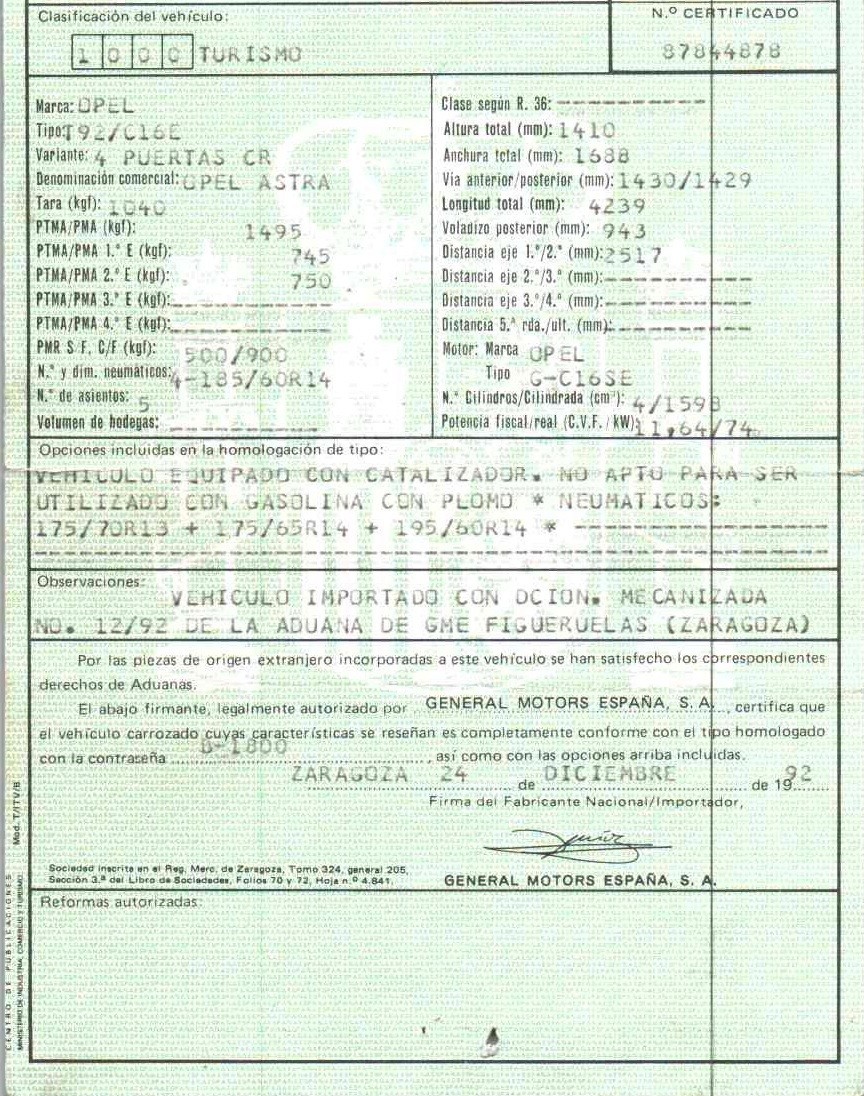 Clasificación del vehículo:
N.º CERTIFICADO
1000 TURISMO
87844878
Marca: OPEL
Tipo: T92/C16E
Variante: 4 PUERTAS CR
Denominación comercial: OPEL ASTRA
Tara (kgf): 1040
PTMA/PMA (kgf): 1495
PTMA/PMA 1.º E (kgf): 745
PTMA/PMA 2.º E (kgf): 750
PTMA/PMA 3.º E (kgf): --------------
PTMA/PMA 4.º E (kgf): --------------
PMR S.F. C/F (kgf): 500/900
N.º y dim. neumáticos: 4-185/60R14
N.º de asientos: 5
Volumen de bodegas: --------------
Clase según R. 36: -------------
Altura total (mm): 1410
Anchura total (mm): 1688
Via anterior/posterior (mm): 1430/1429
Longitud total (mm): 4239
Voladizo posterior (mm): 943
Distancia eje 1.º/2.º (mm): 2517
Distancia eje 2.º/3.º (mm): -------------
Distancia eje 3.º/4.º (mm): -------------
Distancia 5.ª rda./ult. (mm): -------------
Motor: Marca OPEL
Tipo G-C16SE
N.º Cilindros/Cilindrada (cm³): 4/1598
Potencia fiscal/real (C.V.F./kW): 11,64/74
Opciones incluidas en la homologación de tipo:
VEHICULO EQUIPADO CON CATALIZADOR. NO APTO PARA SER
UTILIZADO CON GASOLINA CON PLOMO * NEUMATICOS:
175/70R13 + 175/65R14 + 195/60R14 * -----------------
Observaciones:
VEHICULO IMPORTADO CON DCION. MECANIZADA
NO. 12/92 DE LA ADUANA DE GME FIGUERUELAS (ZARAGOZA)
Por las piezas de origen extranjero incorporadas a este vehículo se han satisfecho los correspondientes
derechos de Aduanas.
El abajo firmante, legalmente autorizado por GENERAL MOTORS ESPAÑA, S. A., certifica que
el vehículo carrozado cuyas características se reseñan es completamente conforme con el tipo homologado
con la contraseña B-1800, así como con las opciones arriba incluidas.
ZARAGOZA 24 de DICIEMBRE de 1992
Firma del Fabricante Nacional/Importador,
Sociedad inscrita en el Reg. Merc. de Zaragoza, Tomo 324, general 205,
Sección 3.ª del Libro de Sociedades, Folios 70 y 72, Hoja n.º 4.841.
GENERAL MOTORS ESPAÑA, S. A.
Reformas autorizadas:
Mod. T/ITV/B
CENTRO DE PUBLICACIONES
MINISTERIO DE INDUSTRIA, COMERCIO Y TURISMO